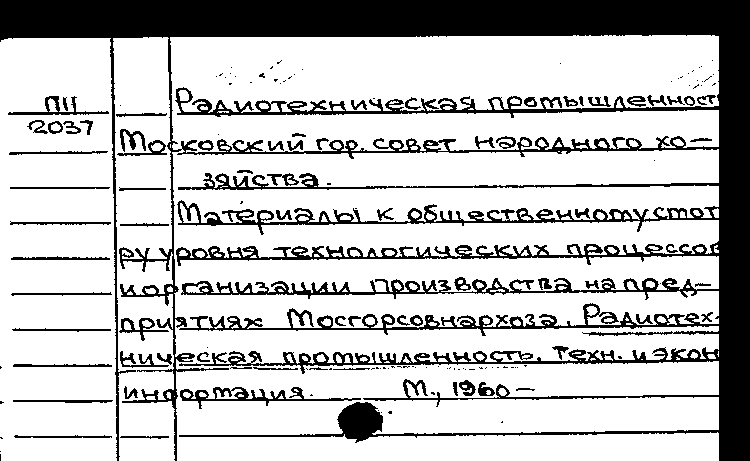 П11
2037
Радиотехническая промышленност
Московский гор. совет народного хо-
зяйства.
Материалы к общественному смот
ру уровня технологических процессов
и организации производства на пред-
приятиях Мосгорсовнархоза. Радиотех-
ническая промышленность. Техн. и экон
информация. М., 1960 –